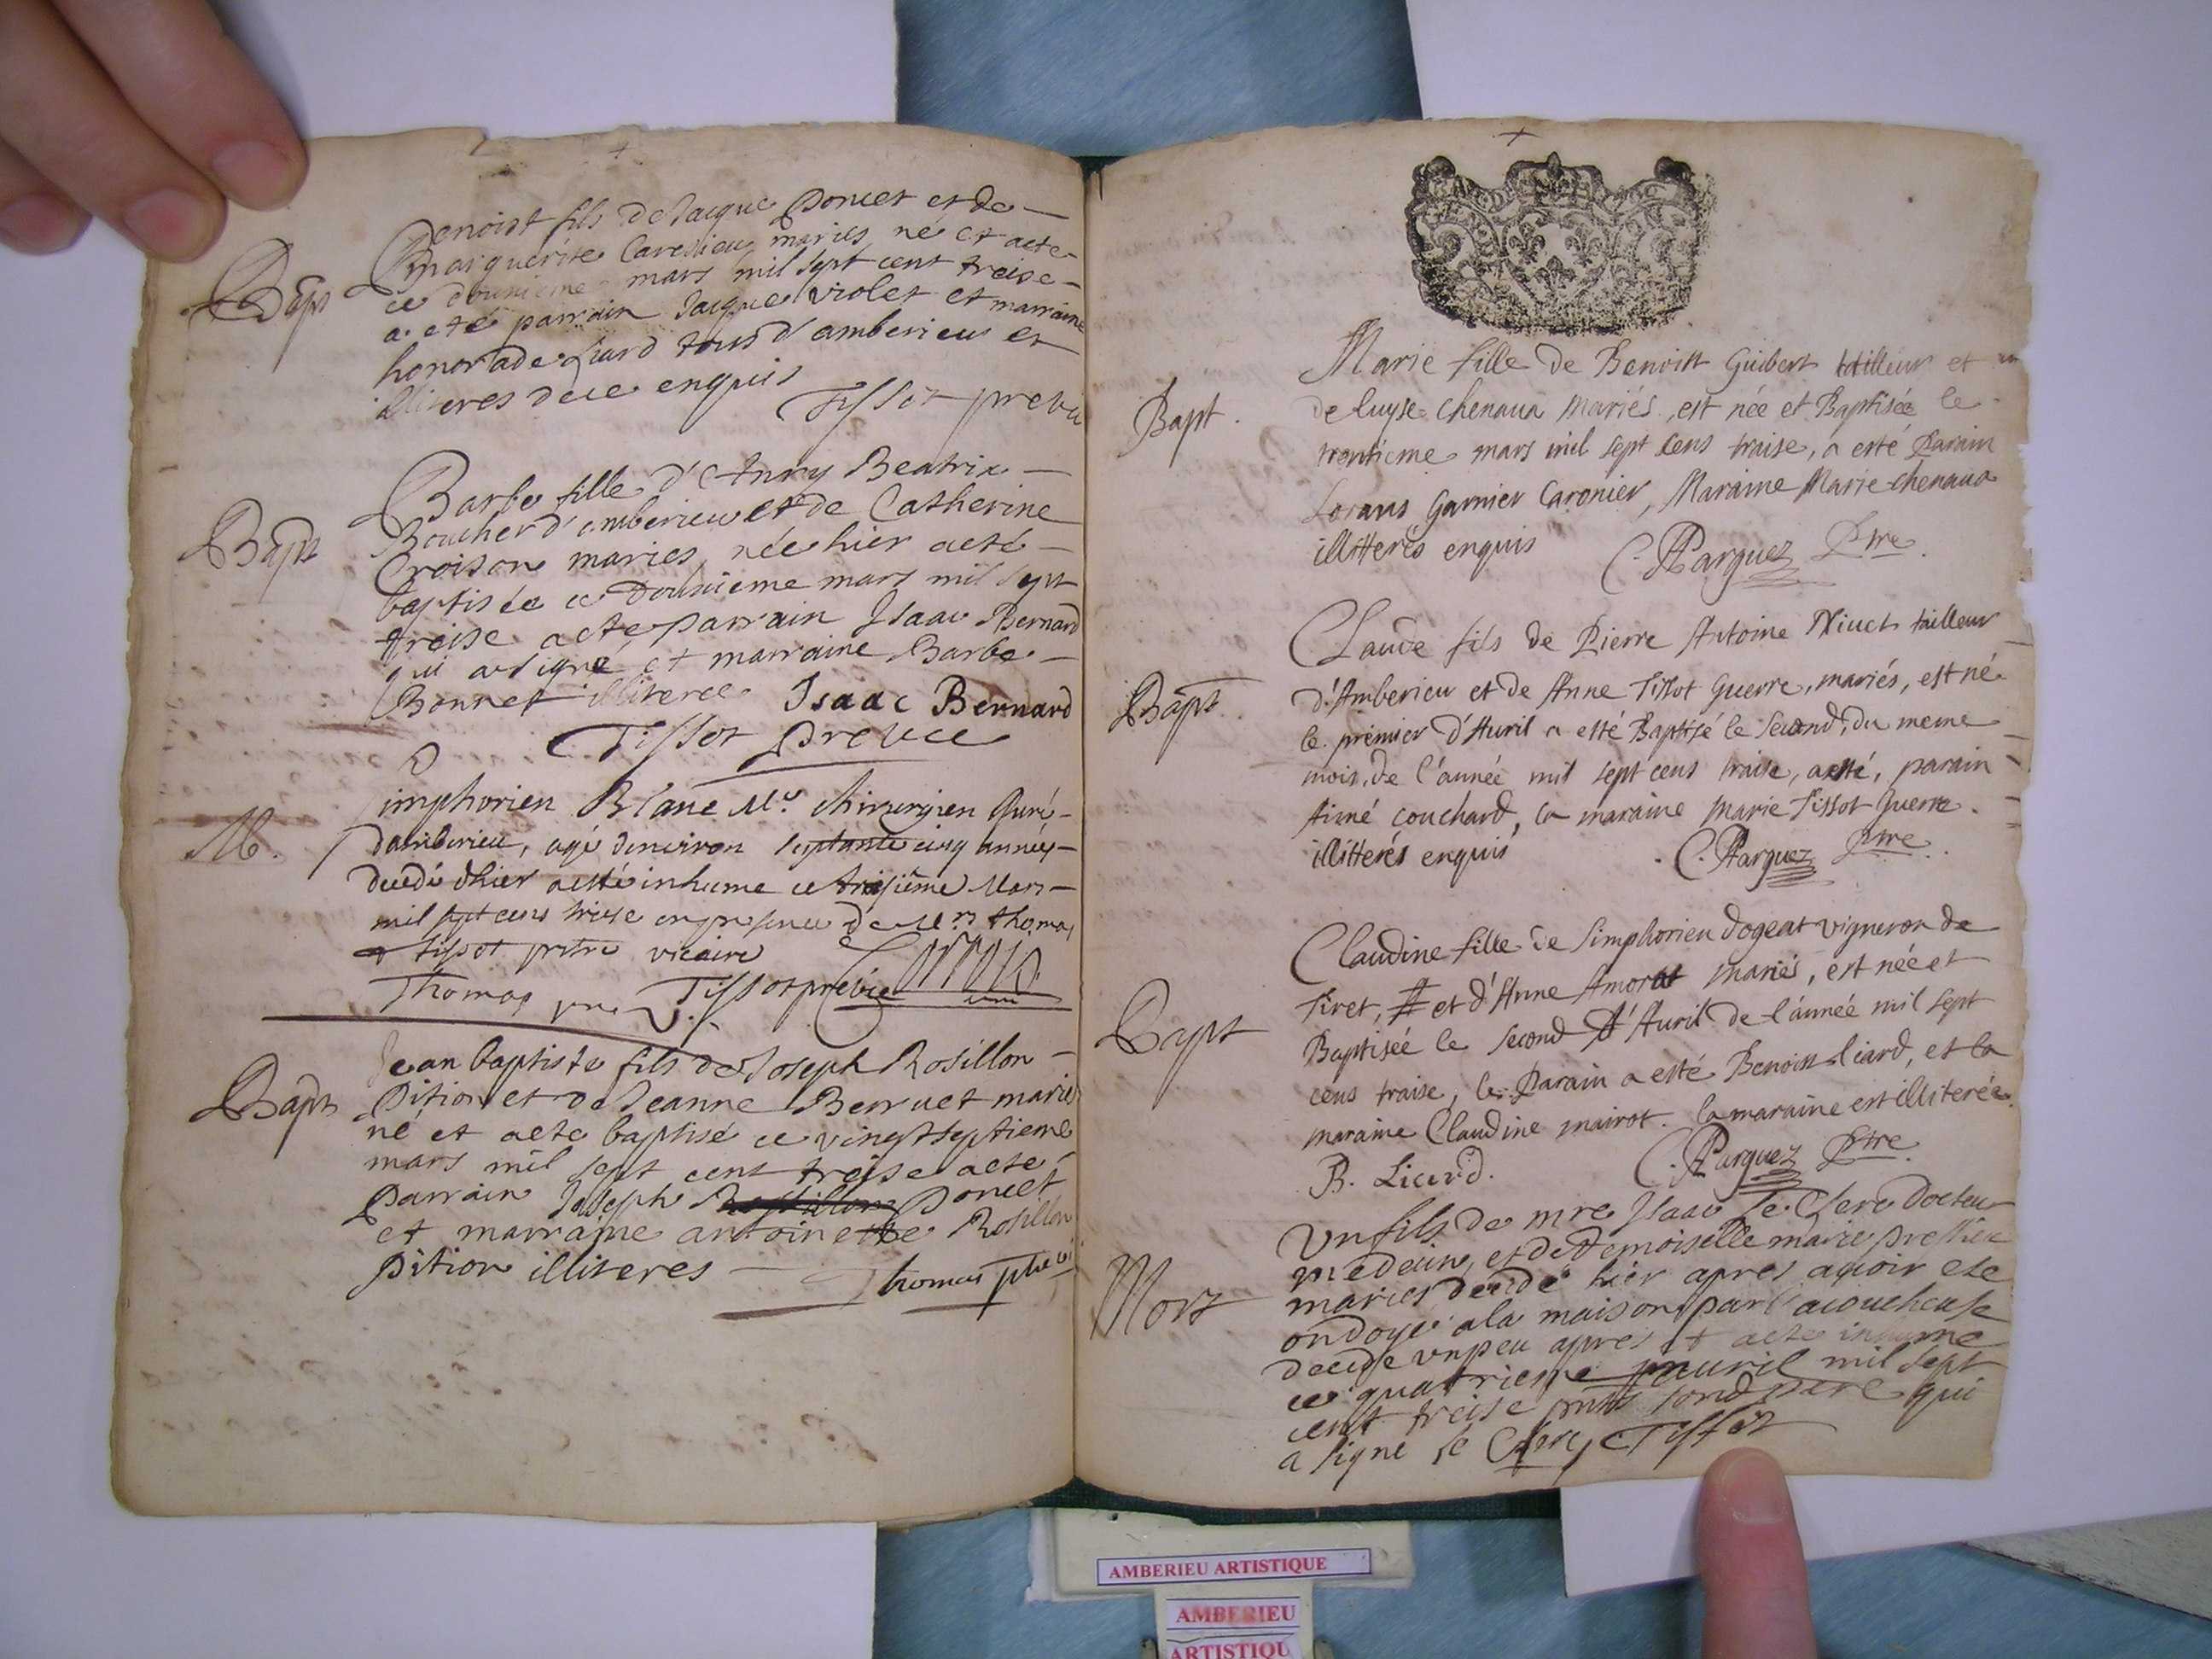 Bapt
Benoist fils de Jacque Poncet et de
marguerite maries né et aete
ce dousieme mars mil sept cent treise
a eté parrain Jacque violet et marraine
honorade liard tous d'amberieu et
illiteres dece enquis
Tissot previc
Bapt
Barbe fille d'Anry Beatrix
Boucher d'amberieu et de Catherine
Croison maries née hier aeté
baptisée ce dousieme mars mil sept
treise aete parrain Isaac Bernard
qui a signe et marraine Barbe
Bonnet illiteree Isaac Bernard
Tissot prevce
M.
Simphorien Blanc Me chirurgien
damberieu, agé denviron septante cinq années
decedé dhier aesté inhume ce Mars
mil sept cens treise en presence de Mrs thomas
et tissot pretre vicaire
Thomas Tissot previc
Bapt
Jean baptiste fils de Joseph Rosillon
Pition et de Jeanne Berruet maries
né et aete baptisé ce vingt septieme
mars mil sept cent treise aete
parrain Joseph Poncet
et marraine antoinette Rosillon
Pition illiteres
Thomas
Bapt.
Marie fille de Benoist Guibert tailleur et
de luyse chenaua Mariés, est née et Baptisée le
trentieme mars mil sept cens traise, a esté Parain
Lorans Garnier Caronier, Maraine Marie chenaua
illitterés enquis C. Parguez Ptre.
Bapt
Claude fils de Pierre Antoine Niuet tailleur
d'Amberieu et de Anne Tissot Guerre, mariés, est né
le premier d'Auril a esté Baptisé le second, du meme
mois, de l'année mil sept cens traise, aesté, parain
Aimé couchard, la maraine Marie Tissot Guerre.
illitterés enquis C. Parguez Ptre.
Bapt
Claudine fille de Simphorien dogeat vigneron de
Tiret, et d'Anne Amorat mariés, est née et
Baptisée le second d'Auril de l'année mil sept
cens traise, le Parain a esté Benoist liard, et la
maraine Claudine mairot. la maraine est illiterée.
B. Liard. C. Parguez Ptre.
Mort
Un fils de mre Isaac le Clerc Docteur
medecin, et de demoiselle marie
maries decedé hier apres avoir ete
ondoyé a la maison par l'acoucheuse
decede un peu apres et aete inhume
ce quatrieme auril mil sept
cent treise pnts sond pere qui
a signe le Clerc Tissot
AMBERIEU ARTISTIQUE
AMBERIEU
ARTISTIQU